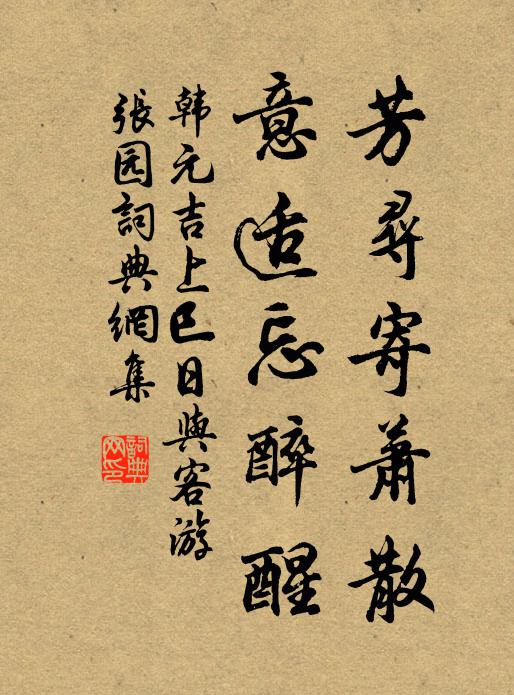 芳尋寄蕭散
意适忘醉醒
韩元吉上巳日與客游
張园詞典網集
詞典網印